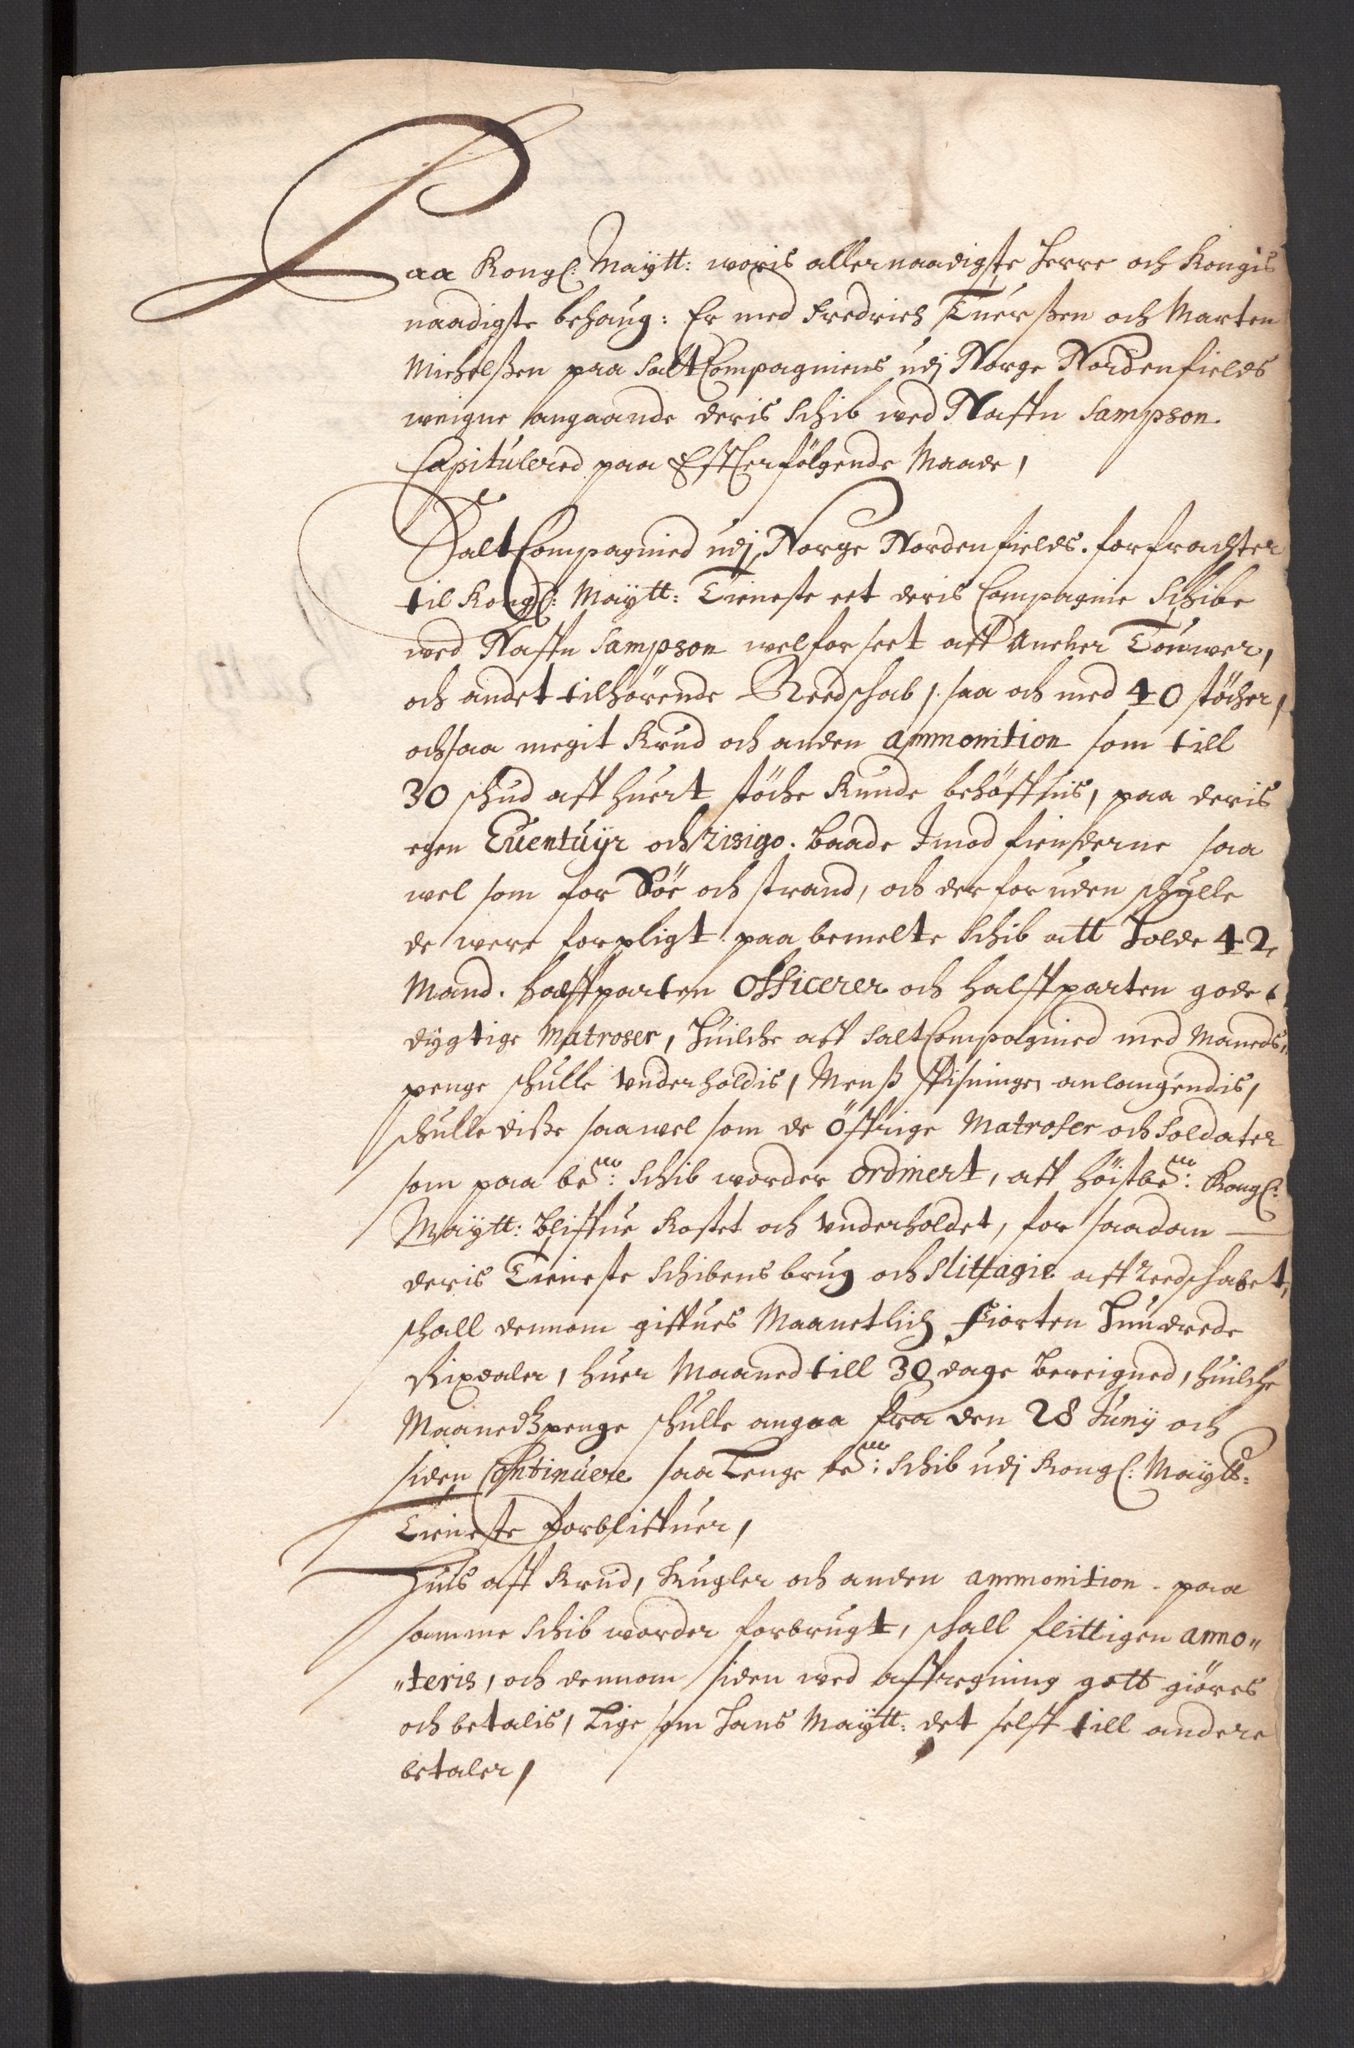 Paa Kongl: Maÿtt: woris allernaadigste Herre och Kongis
naadigste behaug: Er med Fredrich Tuerßen och Marten
Michelßen paa Salt Compagniens udj Norge Nordenfields
weigne angaande deris Schib wed Naffn Sampson
Capitulered paa Effterfölgende Maade,
Salt Compagnied udj Norge Nordenfields. forfrachter
til Kongl: Maÿtt: Tieneste eet deris Compagnie Schibe
wed Naffn Sampson welforseet aff Ancher Touwer,
och andet tilhörende Reedschab, saa och med 40 stöcher,
och saa megit Krud och anden ammonition som till
30 schud aff huert stöche Kunde behöffuis, paa deris
egen Euentuÿr och risigo. Baade Jmod fienderne saa
wel som for Söe och strand, och der foruden schulle
de were forpligt paa bemelte Schib att Holde 42
Mand. halffparten Officerer och halffparten gode
dygtige Matroser, Huilche aff Salt Compagnied med Maaneds
penge schulle underholdis, Menß Spisningen anlangendis,
schulle diße saawel som de öffrige Matroser och Soldater
som paa bete: Schib worder ordinert, aff höistbete: Kongl:
Maÿtt: bliffue Kostet och underholdet, for saadan
deris Tieneste Schibens brug och Slittagie aff reedschabet,
schall dennom giffues Maanetlich Fiorten Hundrede
Rixdaler, huer Maaned till 30 dage Bereigned, huilche
Maanedßpenge schulle angaa fra den 28 Junÿ och
siden Continuere saa Lenge bete: Schib udj Kongl: Maÿtts:
Tieneste forbliffuer,
Huis aff Krud, Kugler och anden ammonition paa
samme Schib worder forbrugt, schall flittigen anno„
„teris, och dennom siden wed affregning gott giöres
och betalis, Lige som Hans Maÿtt: det selff till andere
betaler,